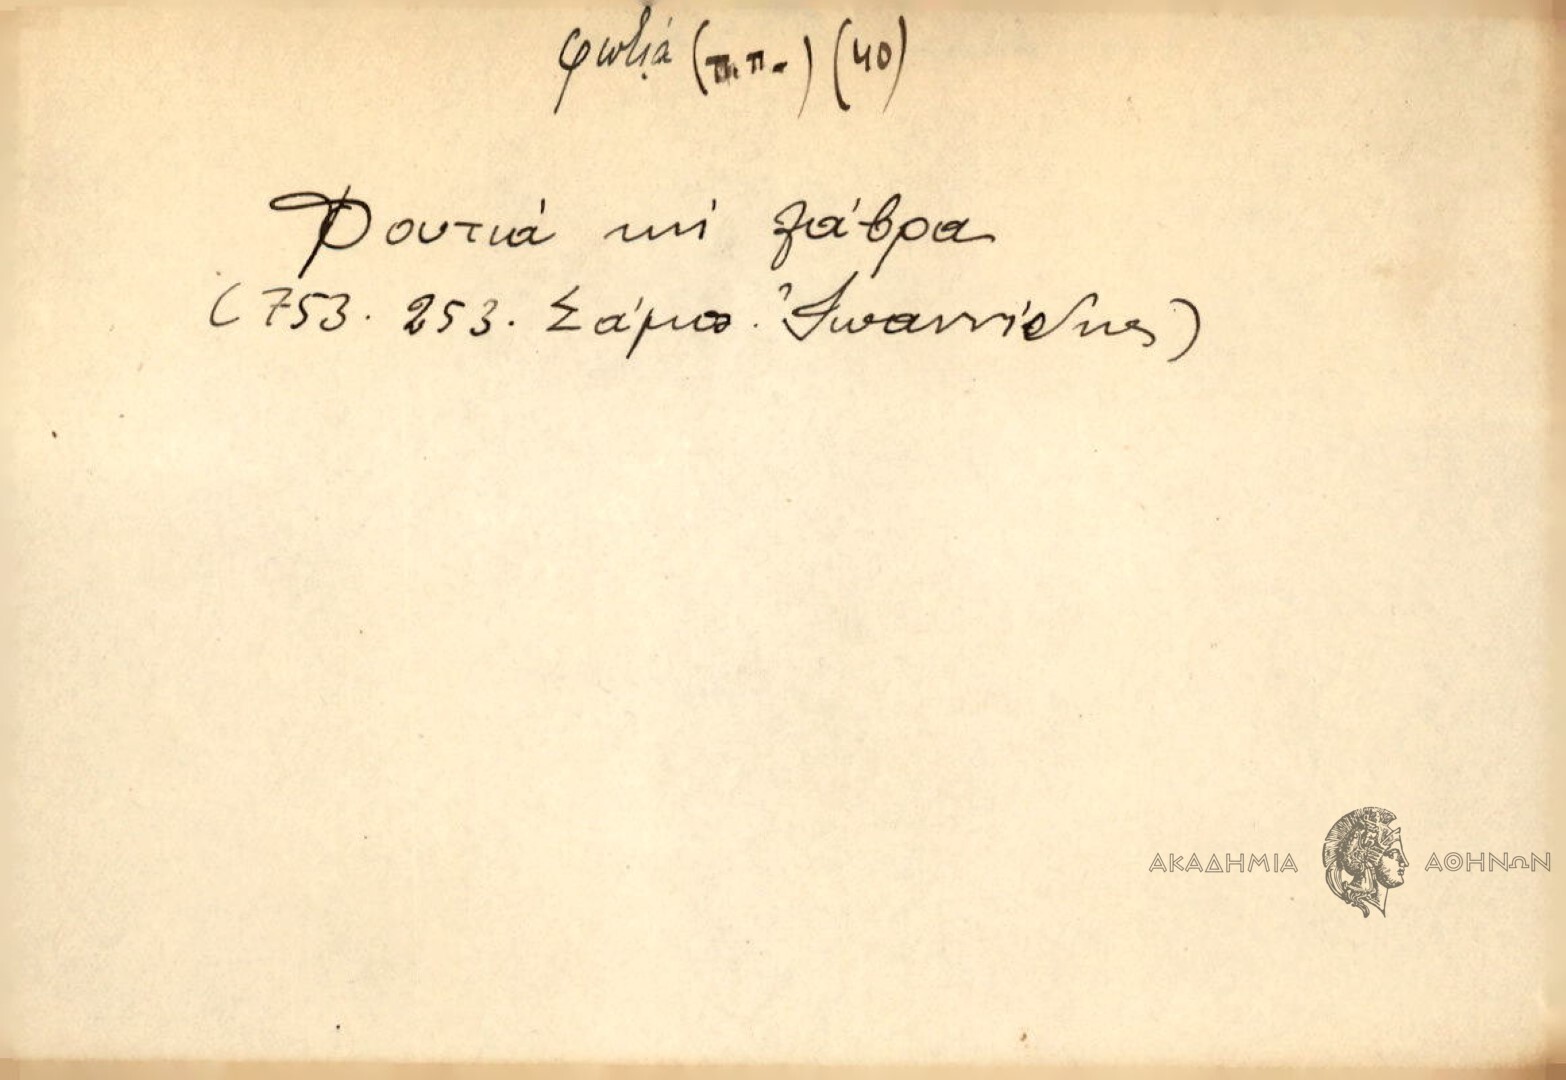 φωτιά (π.π.) (40)
Φουτιά κιὶ λάβρα
(753. 253. Σάμος. Ἰωαννίδης)
ΑΚΑΔΗΜΙΑ ΑΘΗΝΩΝ